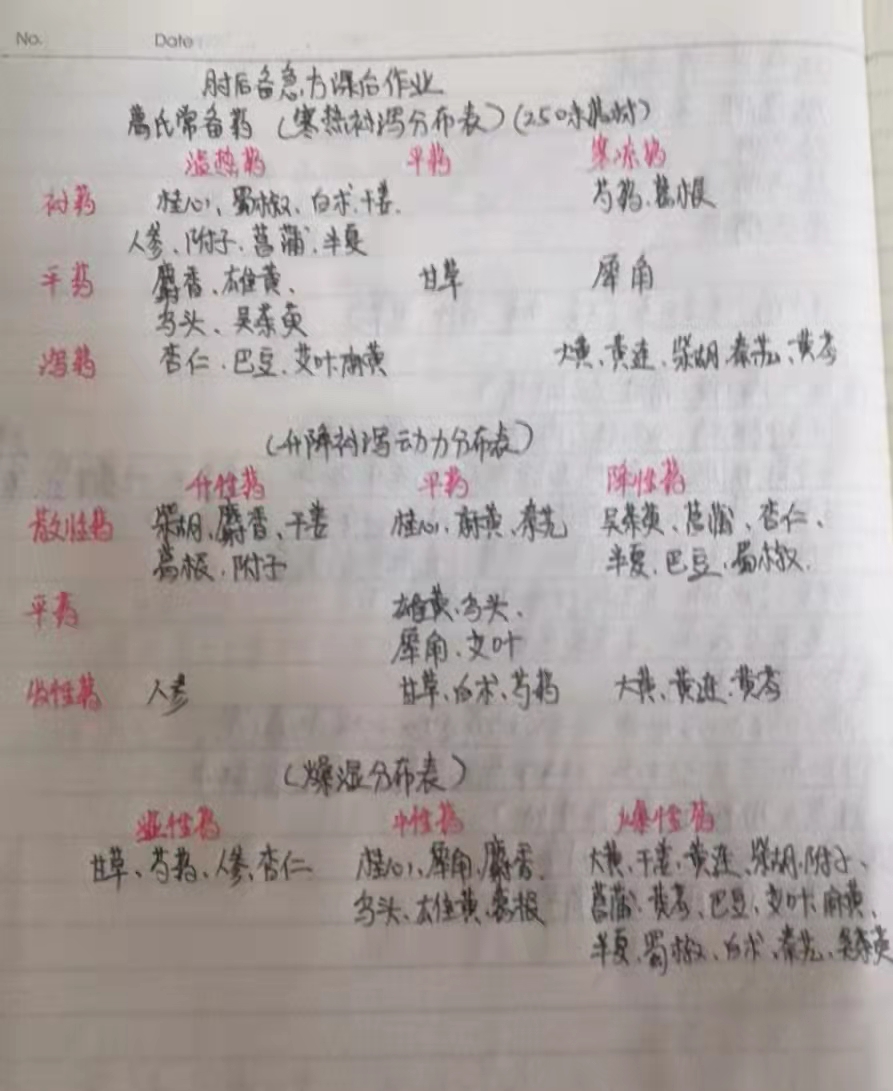 No. Date
肘后备急方课后作业
葛氏常备药（寒热补泻分布表）（250味药材）
温热药 平药 寒凉药
补药 桂心、蜀椒、白术、干姜、 芍药、葛根
人参、附子、菖蒲、半夏
平药 麝香、雄黄、 甘草 犀角
乌头、吴茱萸
泻药 杏仁、巴豆、艾叶、麻黄 大黄、黄连、柴胡、秦艽、黄芩
（升降补泻动力分布表）
升性药 平药 降性药
散性药 柴胡、麝香、干姜 桂心、麻黄、秦艽 吴茱萸、菖蒲、杏仁、
葛根、附子 半夏、巴豆、蜀椒.
平药 雄黄、乌头、
犀角、艾叶
收性药 人参 甘草、白术、芍药 大黄、黄连、黄芩
（燥湿分布表）
湿性药 中性药 燥性药
甘草、芍药、人参、杏仁 桂心、犀角、麝香 大黄、干姜、黄连、柴胡、附子、
乌头、雄黄、葛根 菖蒲、黄芩、巴豆、艾叶、麻黄、
半夏、蜀椒、白术、秦艽、吴茱萸